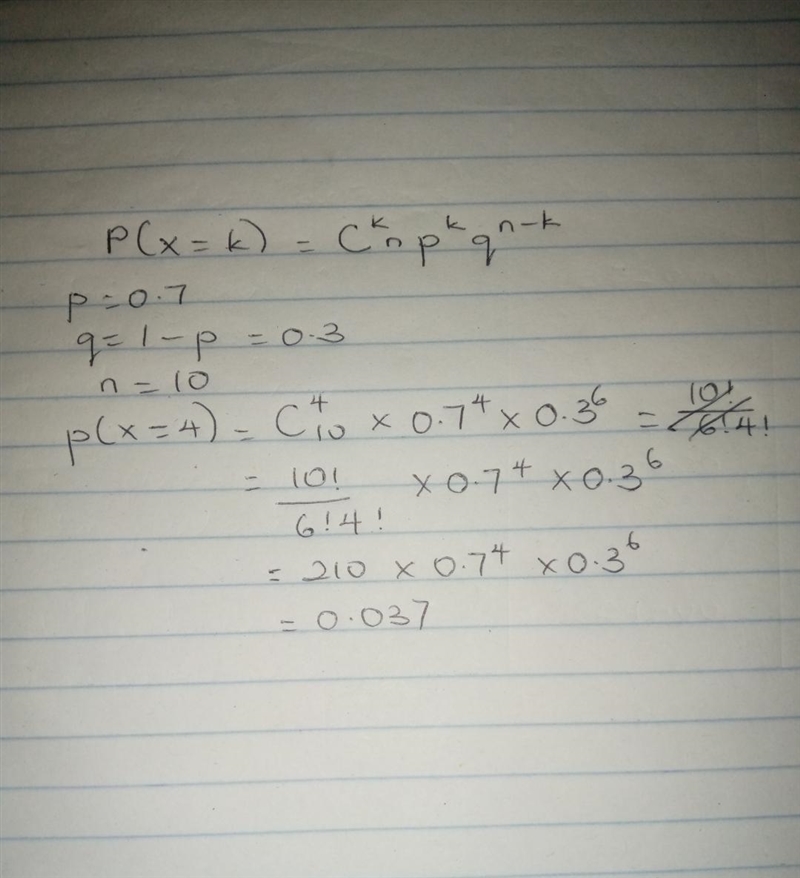 P(x=k) = C^k_n p^k q^{n-k}
p=0.7
q=1-p =0.3
n=10
p(x=4) = C^4_10 × 0.7^4 × 0.3^6 = 10!/6!4!
= 10!/6!4! × 0.7^4 × 0.3^6
= 210 × 0.7^4 × 0.3^6
= 0.037